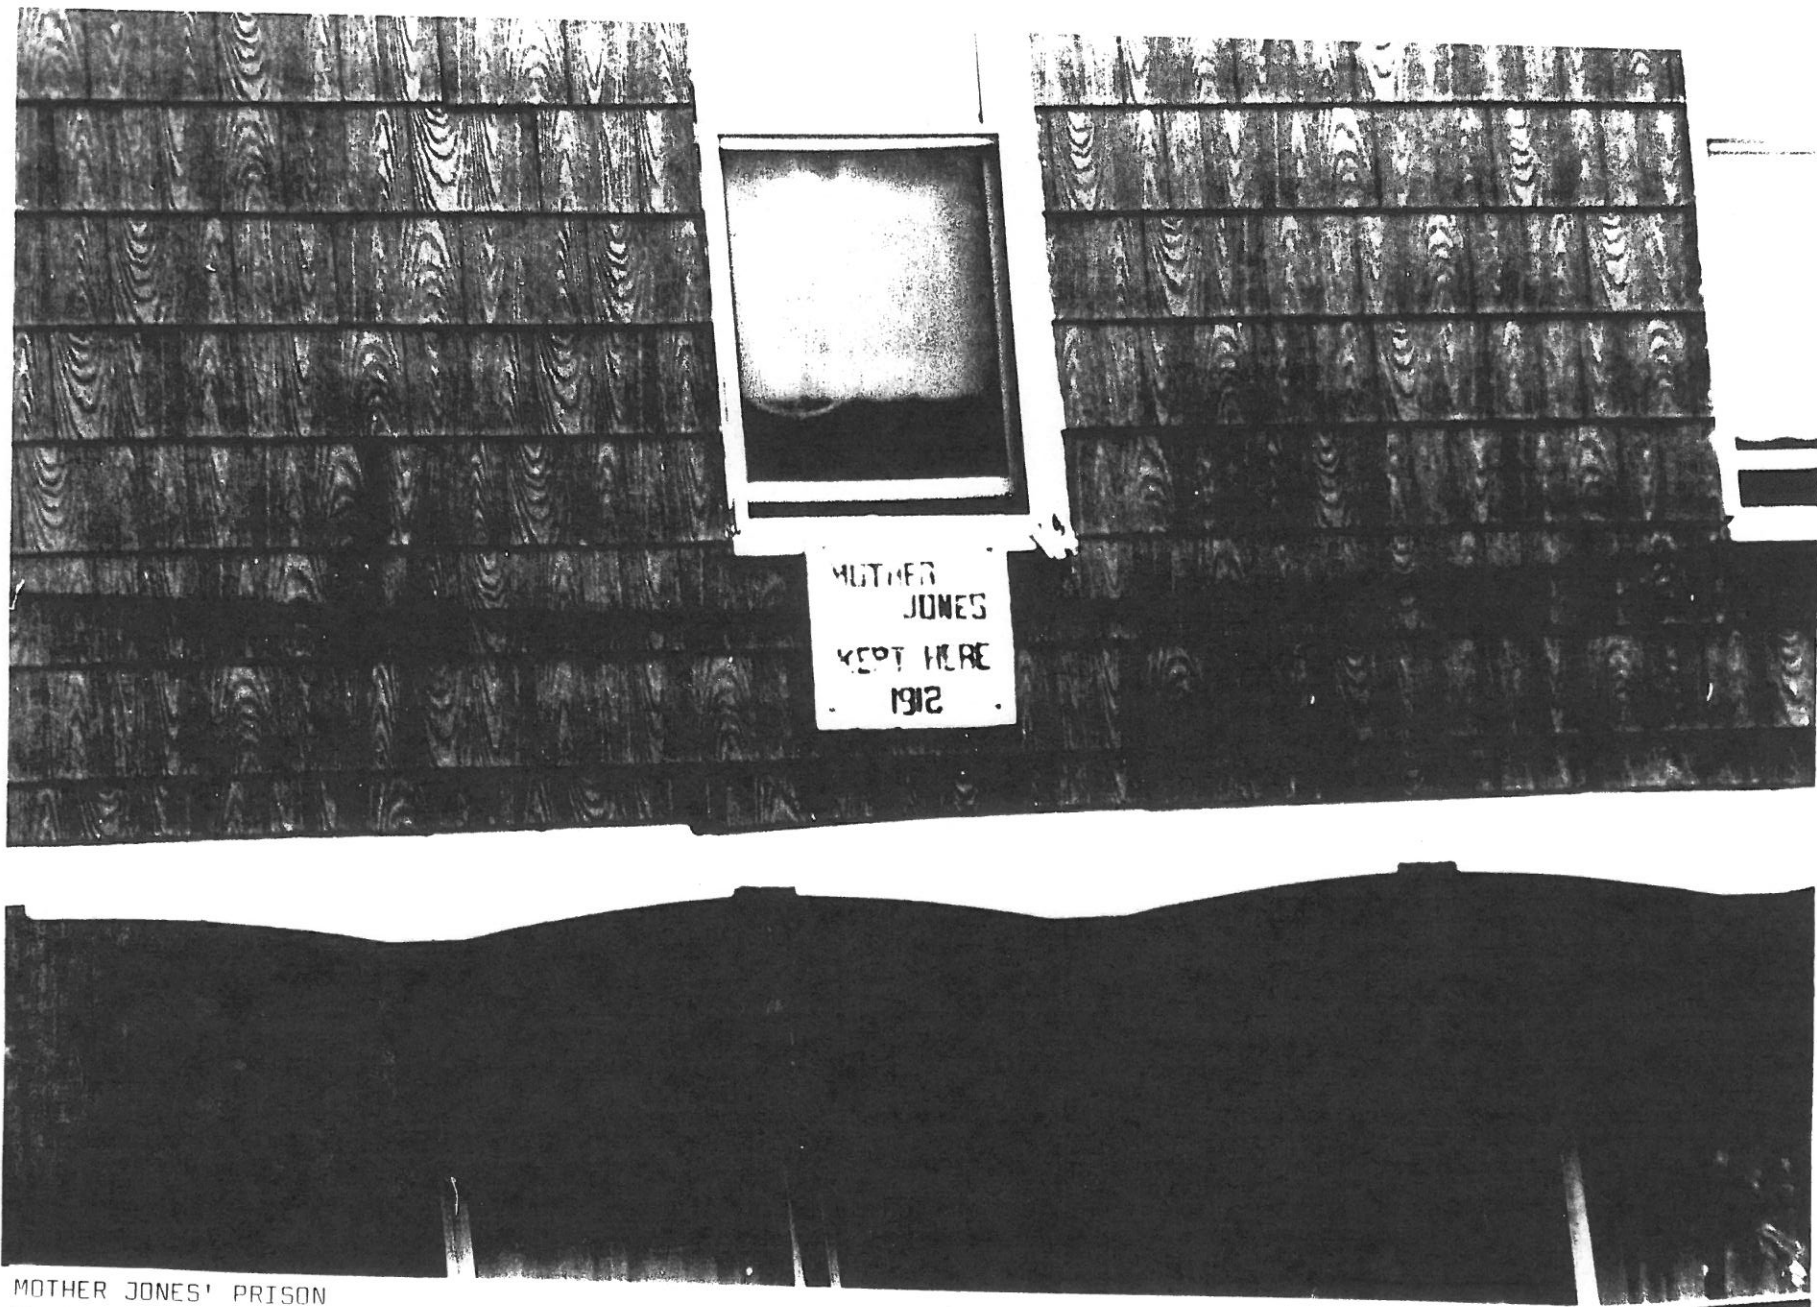 MOTHER
JONES
KEPT HERE
1912
MOTHER JONES' PRISON